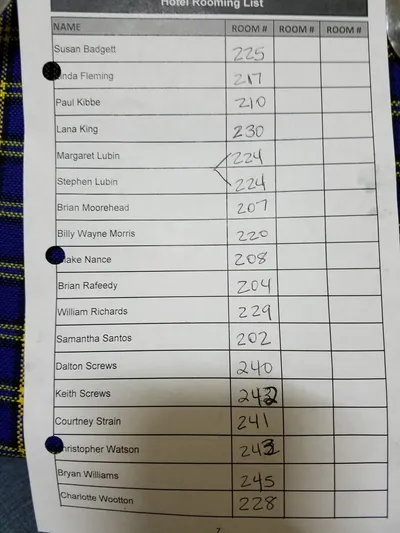 Hotel Rooming List
NAME ROOM # ROOM # ROOM #
Susan Badgett 225
inda Fleming 217
Paul Kibbe 210
Lana King 230
Margaret Lubin 224
Stephen Lubin 224
Brian Moorehead 207
Billy Wayne Morris 220
Blake Nance 208
Brian Rafeedy 204
William Richards 229
Samantha Santos 202
Dalton Screws 240
Keith Screws 242
Courtney Strain 241
hristopher Watson 243
Bryan Williams 245
Charlotte Wootton 228
7